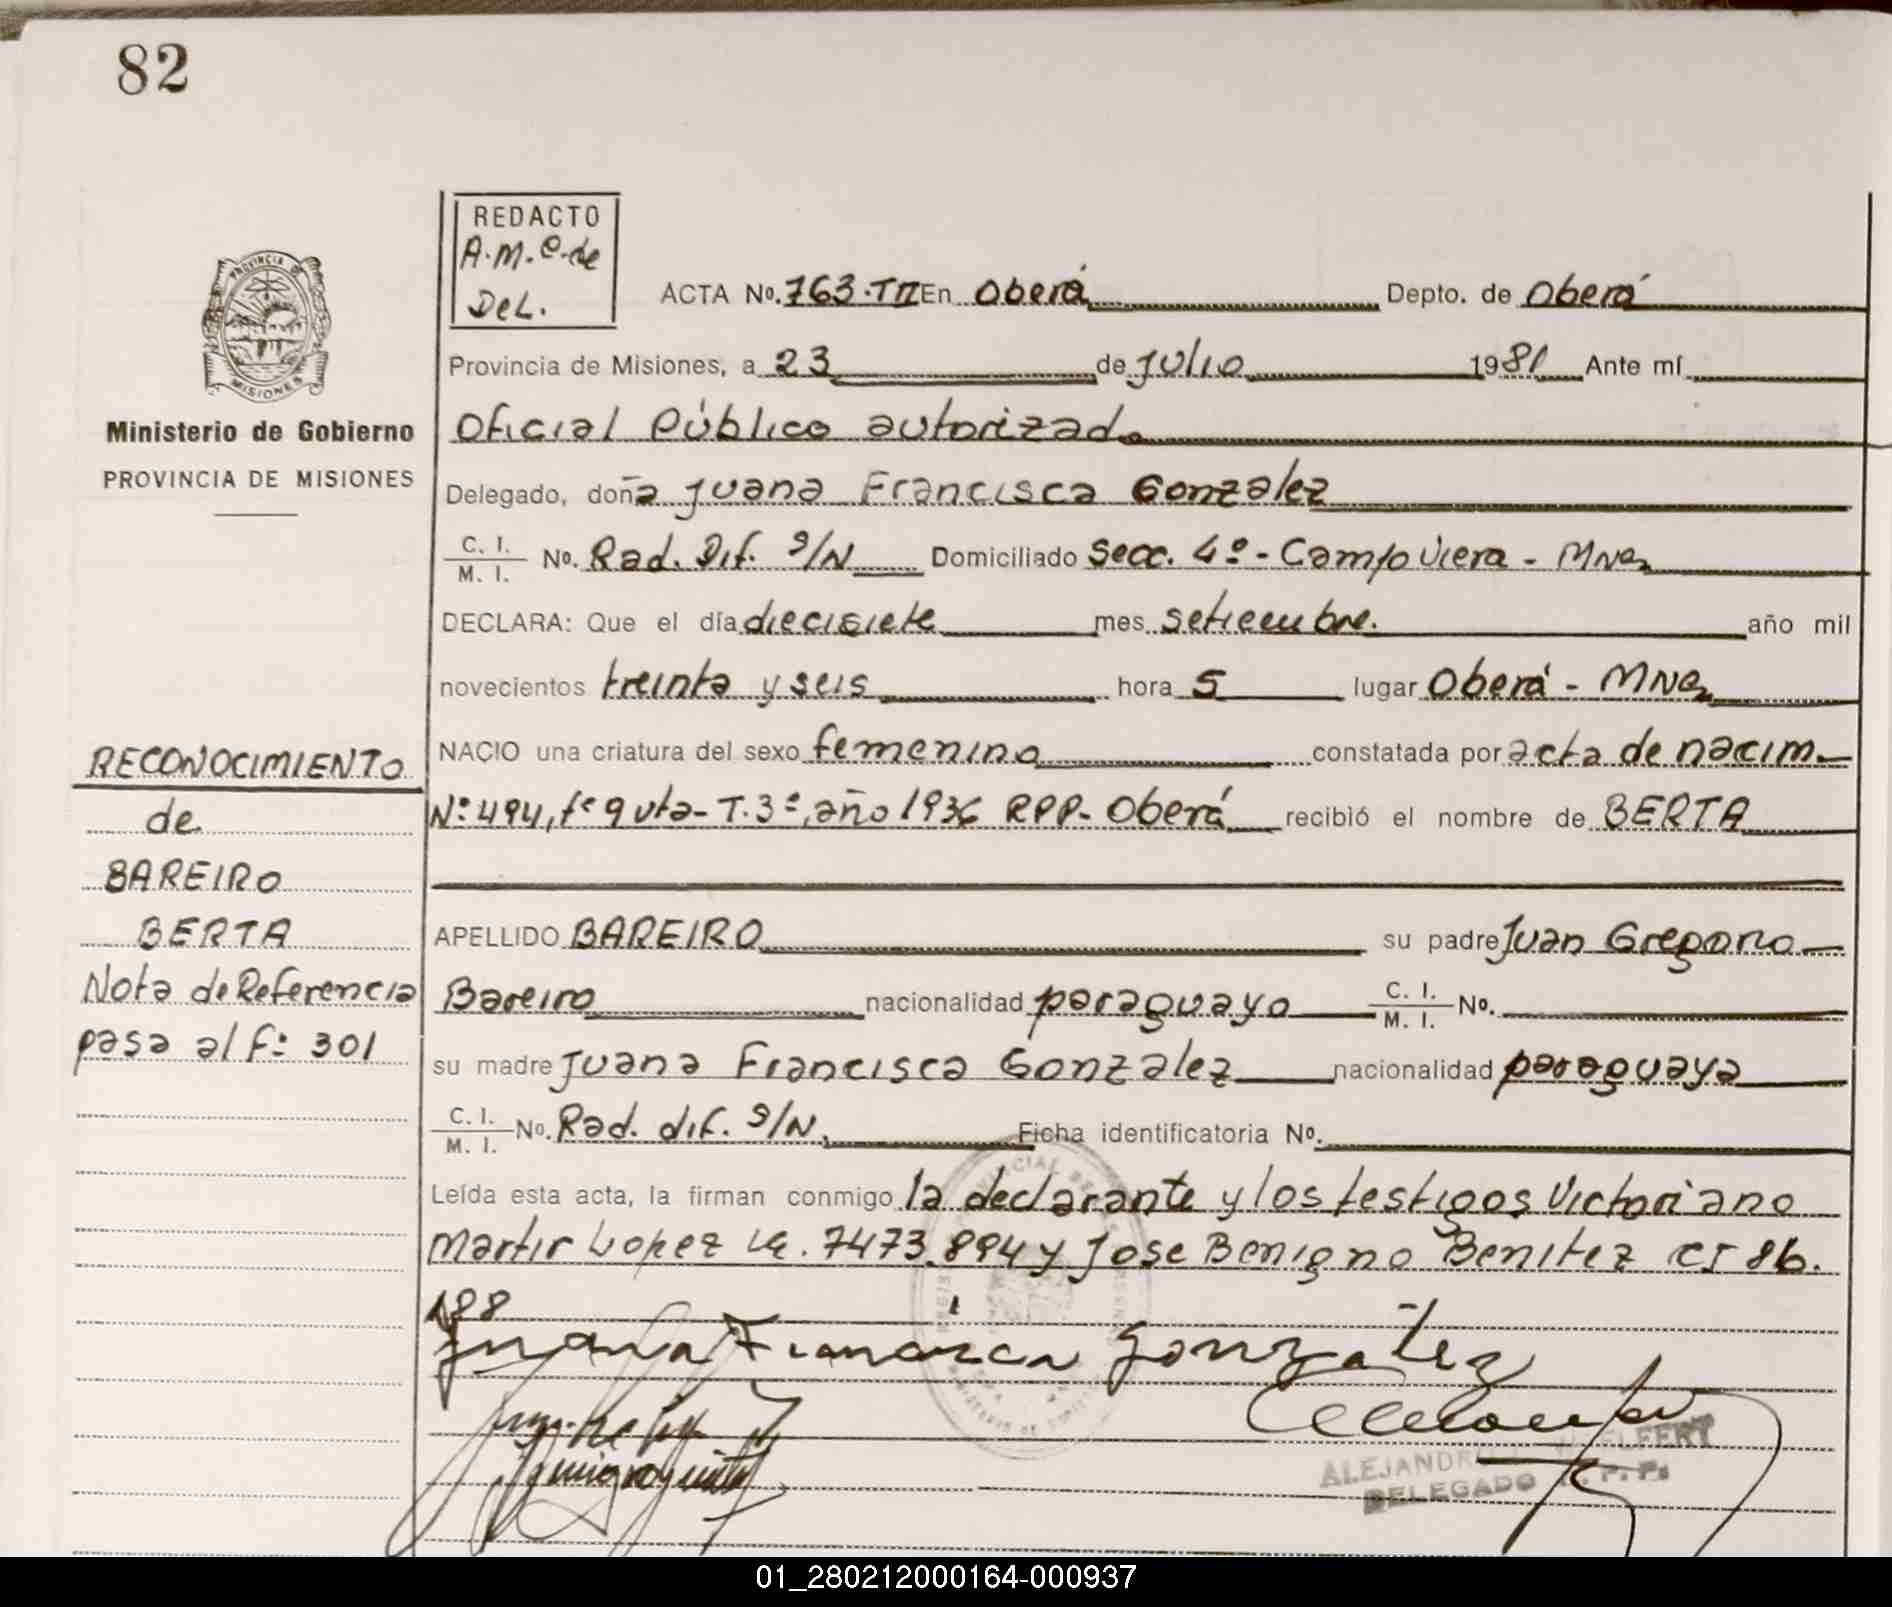 82
REDACTO
A.M.C. de
DeL.
PROVINCIA DE
MISIONES
Ministerio de Gobierno
PROVINCIA DE MISIONES
ACTA No. 763.TII En Oberá Depto. de Oberá
Provincia de Misiones, a 23 de Julio 1981 Ante mí
Oficial Público autorizado
Delegado, doña Juana Francisca Gonzalez
C. I. / M. I. No. Rad. Dif. S/N Domiciliado Secc. 4º - Campo Viera - Mnes
DECLARA: Que el día diecisiete mes setiembre. año mil
novecientos treinta y seis hora 5 lugar Oberá - Mnes
NACIO una criatura del sexo femenino constatada por acta de nacim.
Nº 494, fº 9 vta - T. 3º, año 1936 RPP - Oberá recibió el nombre de BERTA
APELLIDO BAREIRO su padre Juan Gregorio
Bareiro nacionalidad paraguayo C. I. / M. I. No.
su madre Juana Francisca Gonzalez nacionalidad paraguaya
C. I. / M. I. No. Rad. dif. S/N. Ficha identificatoria No.
Leída esta acta, la firman conmigo la declarante y los testigos Victoriano
Martir Lopez LE. 7473.894 y Jose Benigno Benitez CI 86.
188
Juana Francisca Gonzalez
ALEJANDR
DELEGADO R. P. P.
RECONOCIMIENTO
de
BAREIRO
BERTA
Nota de Referencia
pasa al fº 301
01_280212000164-000937